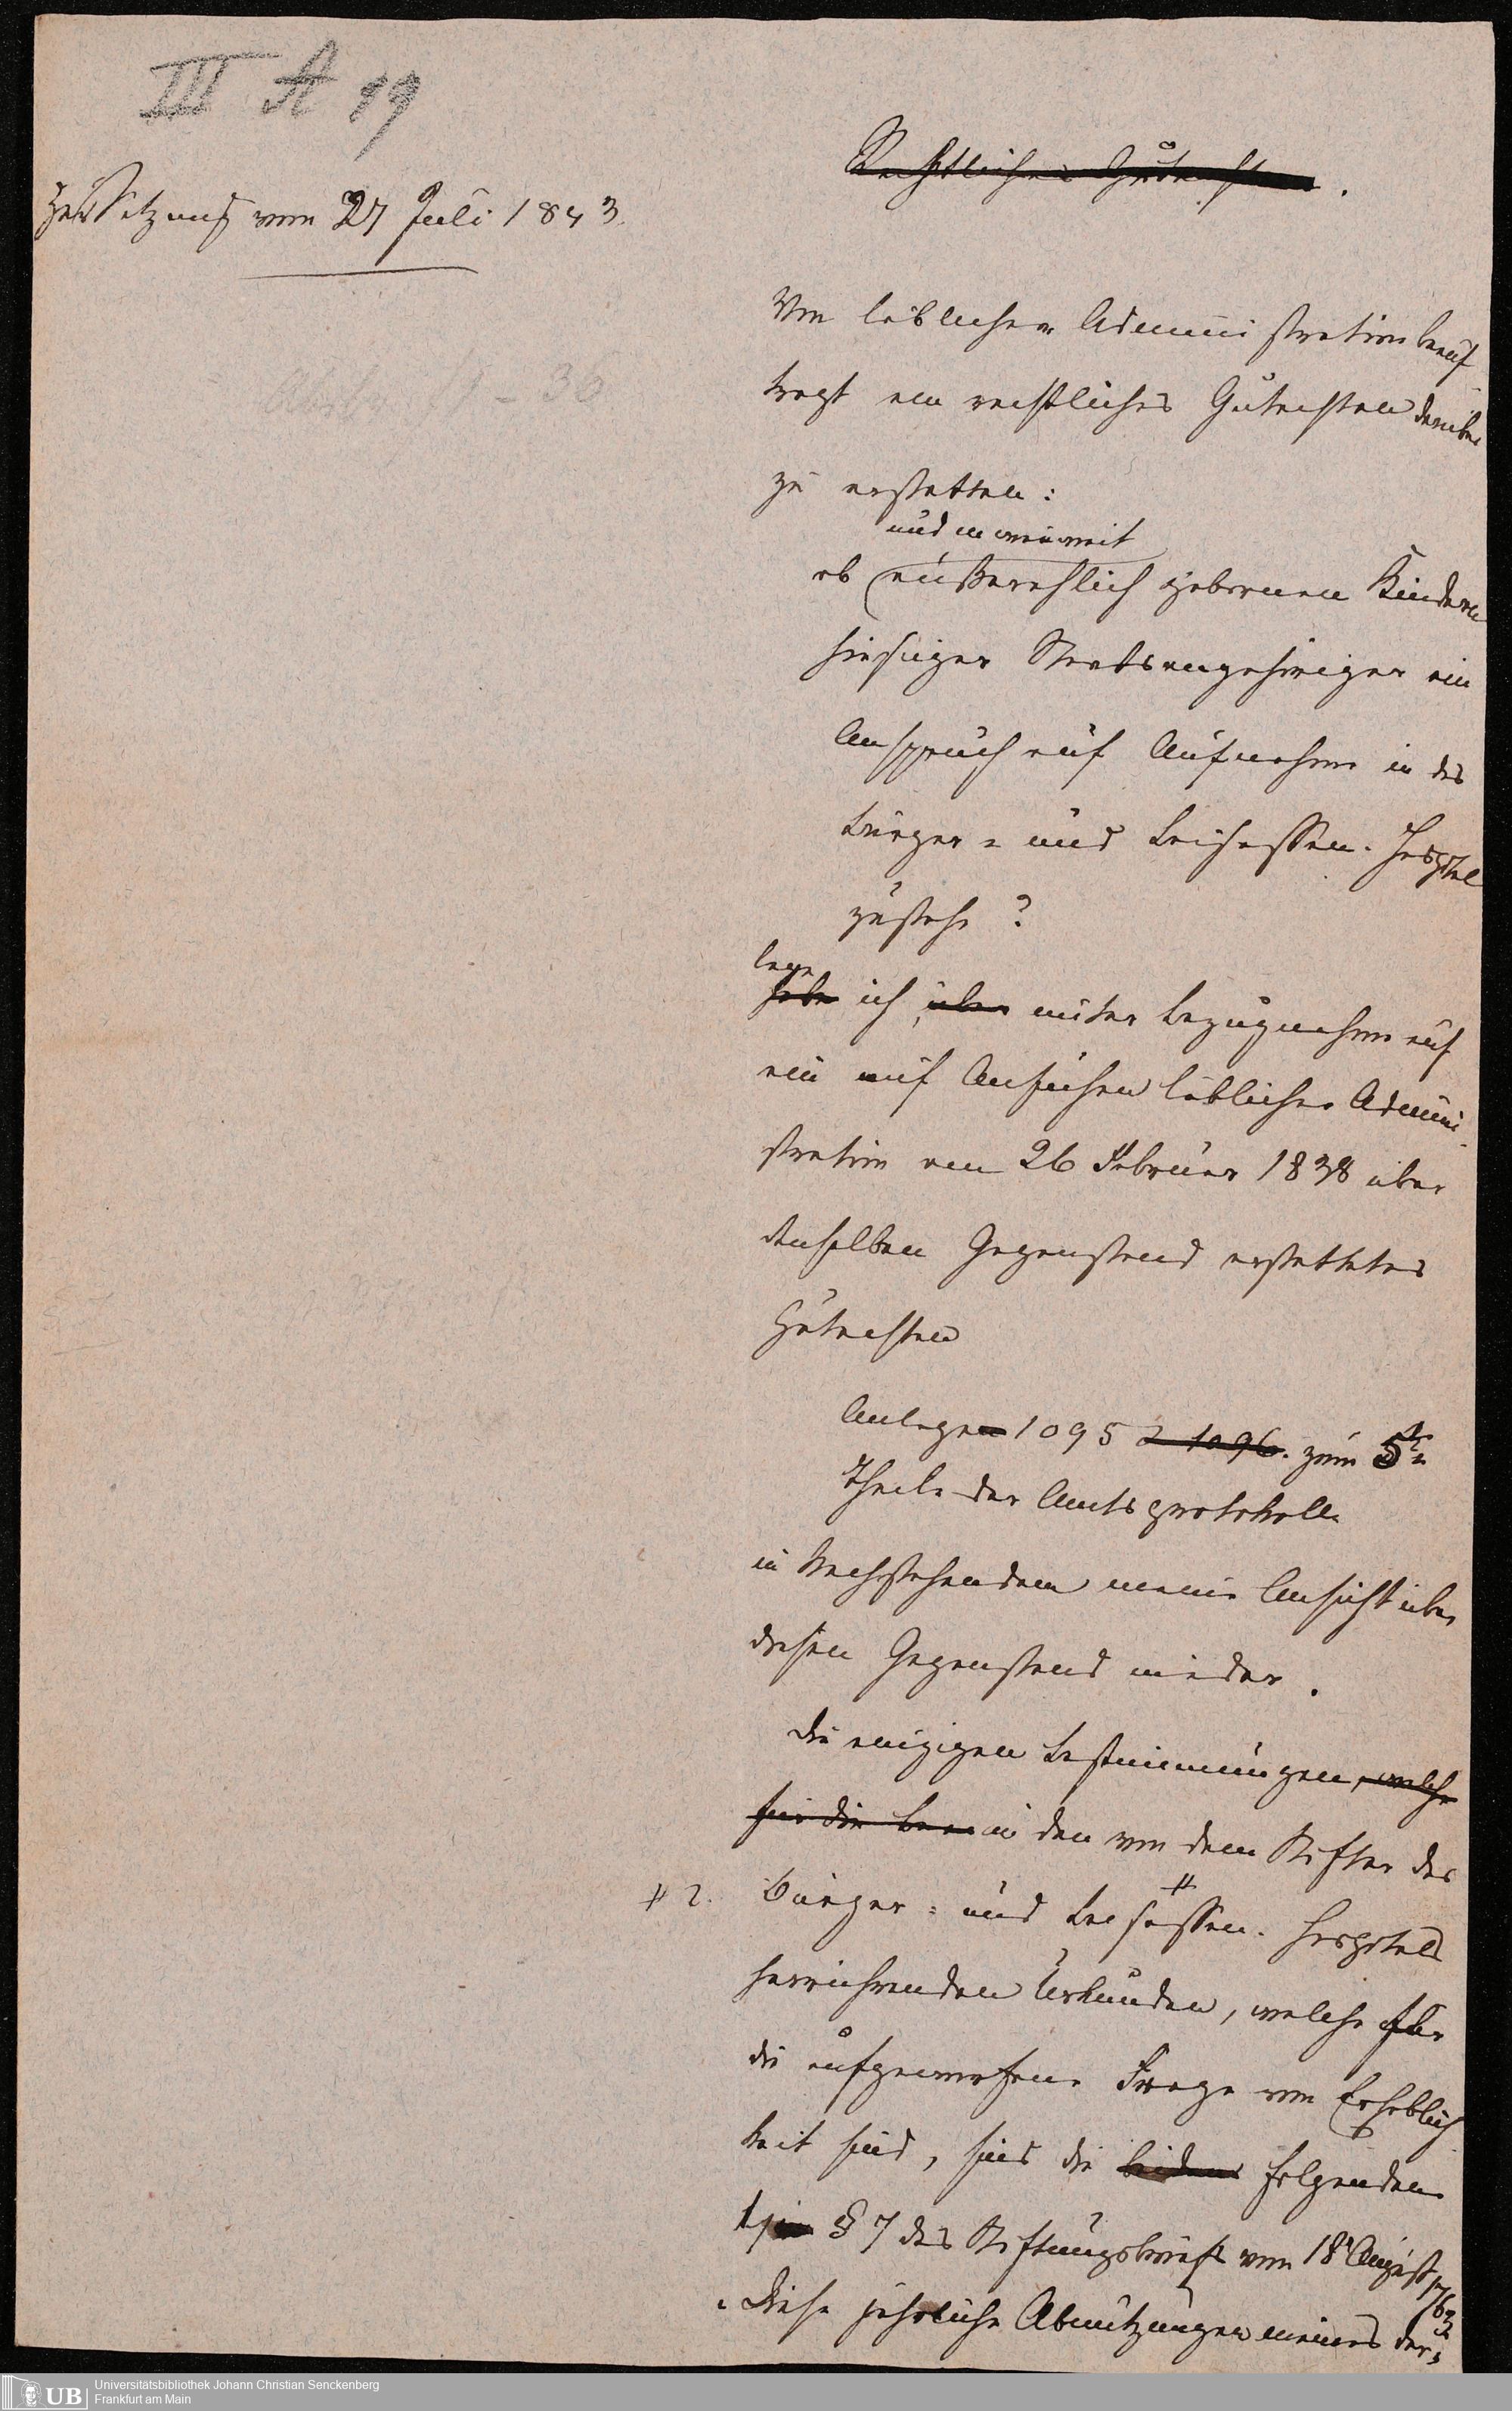 III A 19
Zur Sitzung vom 27 Juli 1843.
Rechtliches Gutachten.
Von löblicher Administration beauf
tragt ein rechtliches Gutachten darüber
zu erstatten:
und in wie weit
ob außerehlich gebornen Kindern
hiesiger Staatsangehöriger ein
Anspruch auf Aufnahme in das
Bürger- und Beisassen-Hospital
zustehe?
lege
habe ich, über unter Bezugnahme auf
ein auf Ansuchen löblicher Admini-
stration am 26 Februar 1838 über
denselben Gegenstand erstattetes
Gutachten
Anlagen 1095 & 1096. zum 5n
Theile der Amtsprotokolle
in Nachstehendem meine Ansicht über
diesen Gegenstand nieder.
Die einzigen Bestimmungen, welche
für die in den von dem Stifter des
# 2. Bürger- und Beisassen-Hospitals
herrührenden Urkunden, welche für
die aufgeworfene Frage von Erheblich
keit sind, sind die beiden folgenden
1) in § 7 des Stiftungsbriefs vom 18 August 1763
„Diese jährliche Abnutzungen meines der;
UB
Universitätsbibliothek Johann Christian Senckenberg
Frankfurt am Main